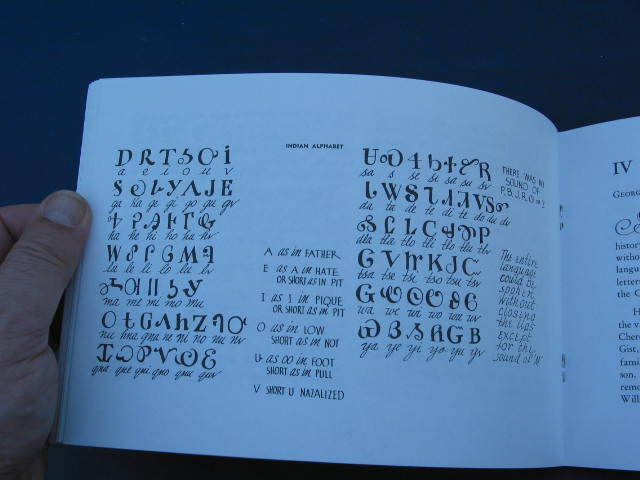 INDIAN ALPHABET
Ꭰ Ꭱ Ꭲ Ꭳ Ꭴ Ꭵ
a e i o u v
Ꭶ Ꭷ Ꭸ Ꭹ Ꭺ Ꭻ Ꭼ
ga ka ge gi go gu gv
Ꭽ Ꭾ Ꭿ Ꮀ Ꮁ Ꮂ
ha he hi ho hu hv
Ꮃ Ꮄ Ꮅ Ꮆ Ꮇ Ꮈ
la le li lo lu lv
Ꮉ Ꮊ Ꮋ Ꮌ Ꮍ
ma me mi mo mu
Ꮎ Ꮏ Ꮐ Ꮑ Ꮒ Ꮓ Ꮔ Ꮕ
nu hna gna ne ni no nu nv
Ꮖ Ꮗ Ꮘ Ꮙ Ꮚ Ꮛ
qua que qui quo quu quv
A as in FATHER
E as A in HATE
OR SHORT as in PIT
I as I in PIQUE
OR SHORT as in PIT
O as in LOW
OR SHORT as in NOT
U as OO in FOOT
SHORT as in PULL
V SHORT U NAZALIZED
Ꮜ Ꮝ Ꮞ Ꮟ Ꮠ Ꮡ Ꮢ
sa s se si sa su sv
Ꮣ Ꮤ Ꮥ Ꮦ Ꮧ Ꮨ Ꮩ Ꮪ Ꮫ
da ta de te di te do du dv
Ꮬ Ꮭ Ꮮ Ꮯ Ꮰ Ꮱ Ꮲ
dla tla tlo tli tlo tlu tlv
Ꮳ Ꮴ Ꮵ Ꮶ Ꮷ Ꮸ
tsa tse tsi tso tsu tsv
Ꮹ Ꮺ Ꮻ Ꮼ Ꮽ Ꮾ
wa we wi wo wu wv
Ꮿ Ᏸ Ᏹ Ᏺ Ᏻ Ᏼ
ya ye yi yo yu yv
THERE WAS NO
SOUND OF
P.B.J.R.O or Z
The entire
language
could be
spoken
without
closing
the lips
except
for the
sound of "M"
IV
GEORG
histor
withou
langu
letters
the C
H
the m
Chero
Gist,
famil
son.
remo
Will